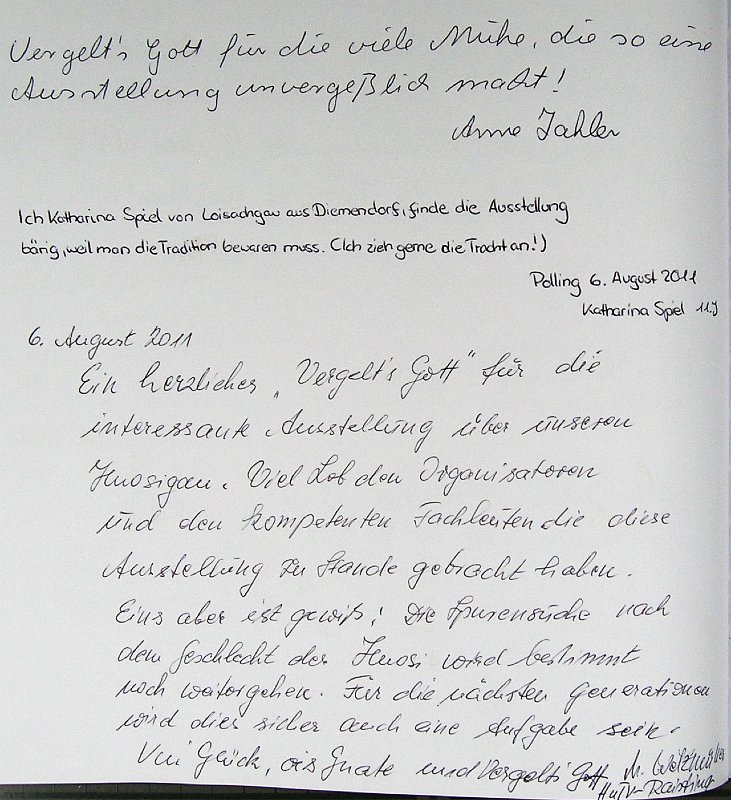 Vergelt's Gott für die viele Mühe, die so eine
Ausstellung unvergeßlich macht!
Anne Jahler
Ich Katharina Spiel von Loisachgau aus Diemendorf, finde die Ausstellung
bärig, weil man die Tradition bewaren muss. (Ich zieh gerne die Tracht an!)
Polling 6. August 2011
Katharina Spiel 11.J
6. August 2011
Ein herzliches „Vergelt's Gott" für die
interessante Ausstellung über unseren
Huosigau. Viel Lob den Organisatoren
und den kompetenten Fachleuten die diese
Ausstellung zu Stande gebracht haben.
Eins aber ist gewiß! Die Spurensuche nach
dem Geschlecht der Huosi wird bestimmt
noch weitergehen. Für die nächsten Generationen
wird dies sicher auch eine Aufgabe sein.
Vui Glück, ois Guate und Vergelts Gott